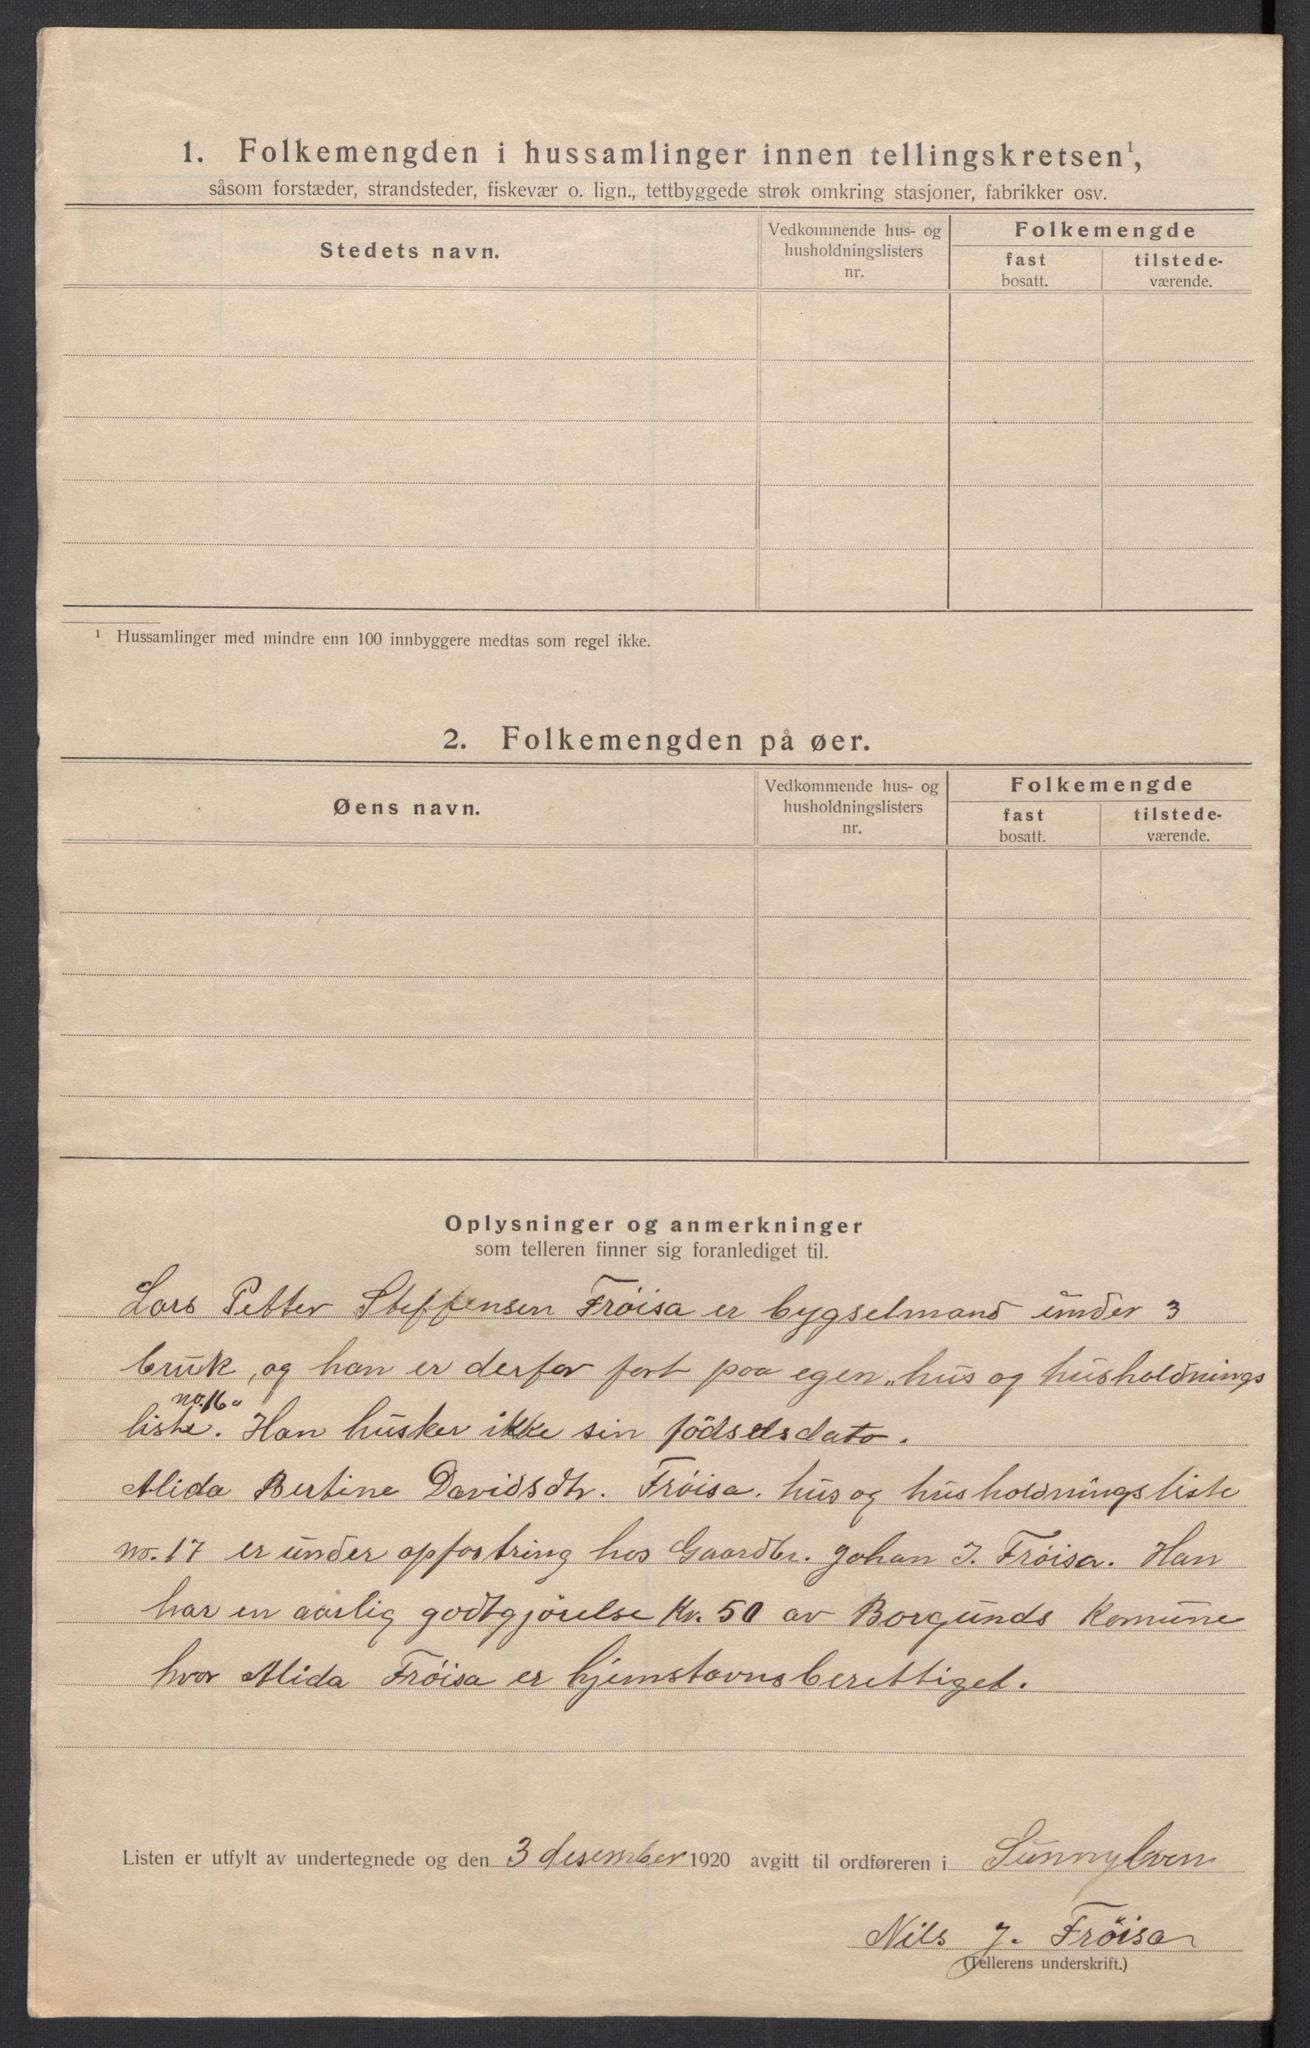 1. Folkemengden i hussamlinger innen tellingskretsen¹,
såsom forstæder, strandsteder, fiskevær o. lign., tettbyggede strøk omkring stasjoner, fabrikker osv.
Stedets navn.
Vedkommende hus- og husholdningslisters nr.
Folkemengde
fast bosatt.
tilstede-værende.
¹ Hussamlinger med mindre enn 100 innbyggere medtas som regel ikke.
2. Folkemengden på øer.
Øens navn.
Vedkommende hus- og husholdningslisters nr.
Folkemengde
fast bosatt.
tilstede-værende.
Oplysninger og anmerkninger
som telleren finner sig foranlediget til.
Lars Petter Steffensen Frøisa er bygselmand under 3
bruk, og han er derfor ført paa egen „hus og husholdnings
liste no. 16". Han husker ikke sin födselsdato.
Alida Bertine Davidsdtr. Frøisa. hus og husholdningsliste
no. 17 er under opfostring hos Gaardbr. Johan J. Frøisa. Han
har en aarlig godtgjørelse Kr. 50 av Borgunds Komune
hvor Alida Frøisa er hjemstavnsberettiget.
Listen er utfylt av undertegnede og den 3 desember 1920 avgitt til ordføreren i Sunnylven
Nils J. Frøisa
(Tellerens underskrift.)